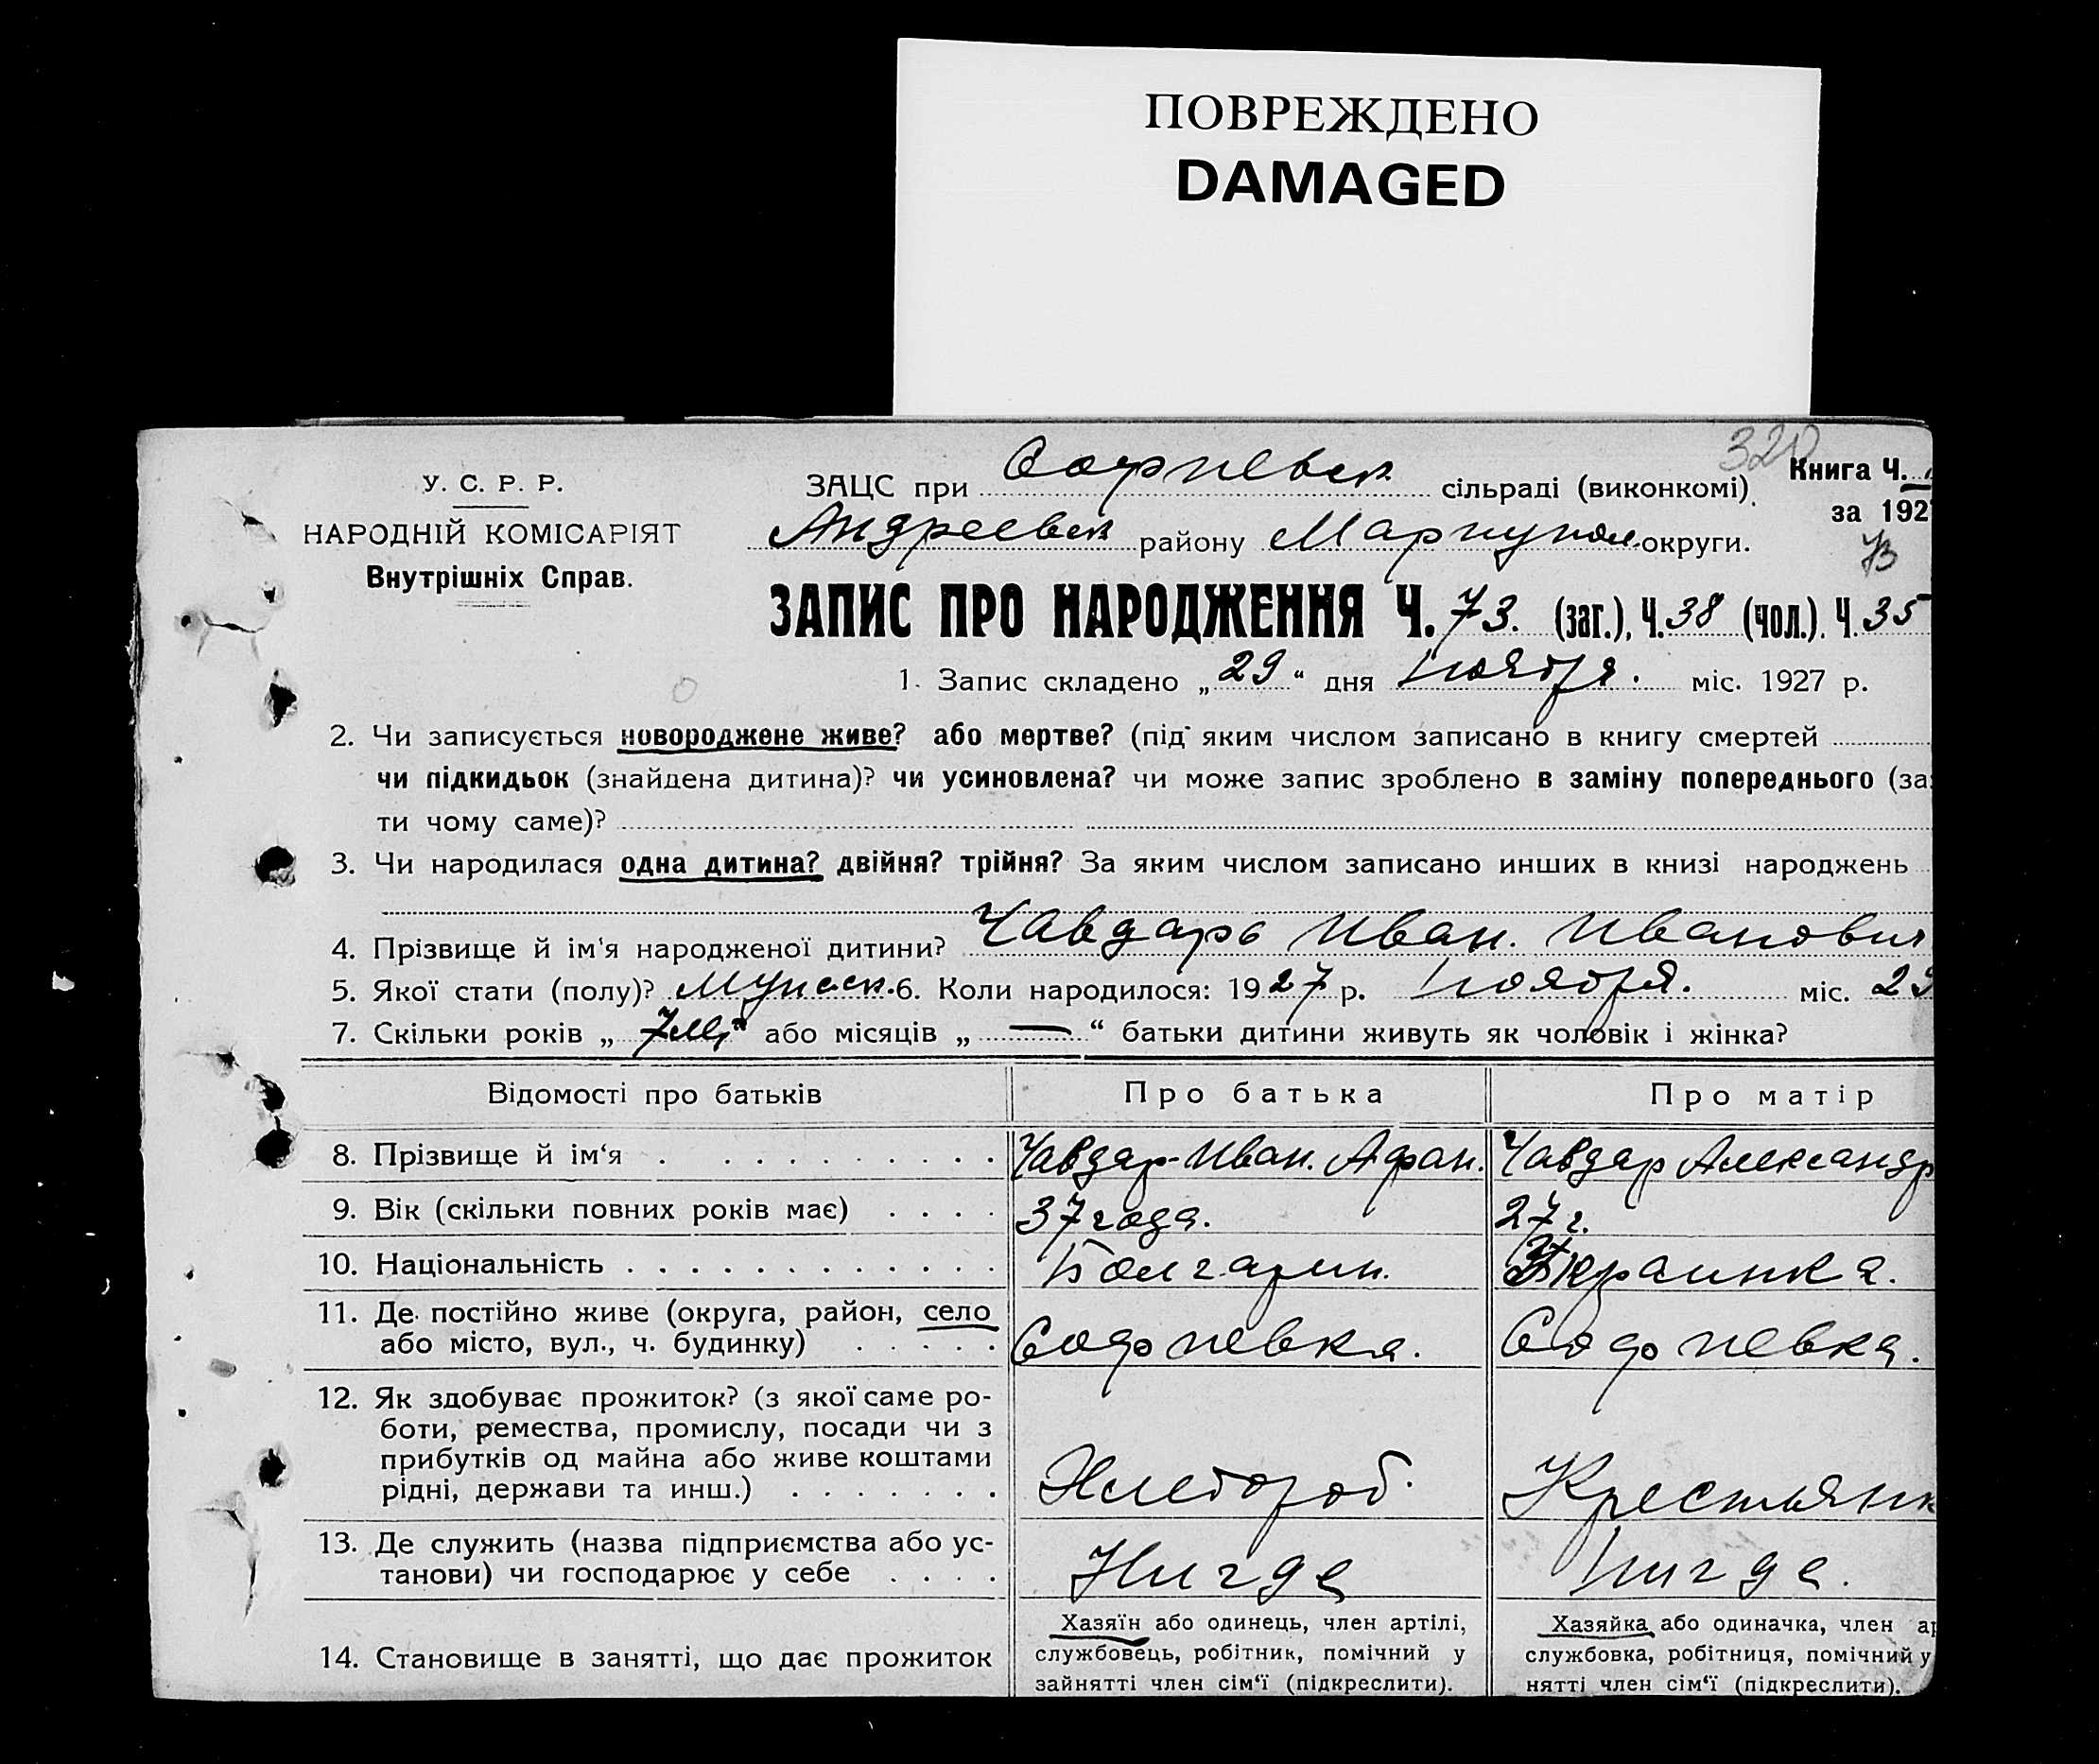 ПОВРЕЖДЕНО
DAMAGED
320
У. С. Р. Р.
НАРОДНІЙ КОМІСАРІЯТ
Внутрішніх Справ.
ЗАЦС при Софиевск сільраді (виконкомі).
Книга Ч.
за 192
Андреевск району Мариупол. округи.
73
ЗАПИС ПРО НАРОДЖЕННЯ Ч. 73. (заг.), Ч. 38 (чол.). Ч. 35
1. Запис складено „29“ дня ноября. міс. 1927 р.
2. Чи записується новороджене живе? або мертве? (під яким числом записано в книгу смертей
чи підкидьок (знайдена дитина)? чи усиновлена? чи може запис зроблено в заміну попереднього (за
ти чому саме)?
3. Чи народилася одна дитина? двійня? трійня? За яким числом записано инших в книзі народжень
4. Прізвище й ім'я народженої дитини? Чавдарь Иван. Иванович
5. Якої стати (полу)? мужск. 6. Коли народилося: 1927 р. ноября. міс. 29
7. Скільки років „ “ або місяців „—“ батьки дитини живуть як чоловік і жінка?
Відомості про батьків Про батька Про матір
8. Прізвище й ім‘я Чавдар Иван. Афан. Чавдар Александр
9. Вік (скільки повних років має) 37 года. 27 г.
10. Національність Болгарин. Украинка.
11. Де постійно живе (округа, район, село
або місто, вул., ч. будинку) Софиевка. Софиевка.
12. Як здобуває прожиток? (з якої саме ро-
боти, ремества, промислу, посади чи з
прибутків од майна або живе коштами
рідні, держави та инш.) Хлебороб. Крестьянк
13. Де служить (назва підприємства або ус-
танови) чи господарює у себе Нигде Нигде.
14. Становище в занятті, що дає прожиток
Хазяїн або одинець, член артілі,
службовець, робітник, помічний у
зайнятті член сім‘ї (підкреслити).
Хазяйка або одиначка, член ар
службовка, робітниця, помічний у
нятті член сім‘ї (підкреслити).